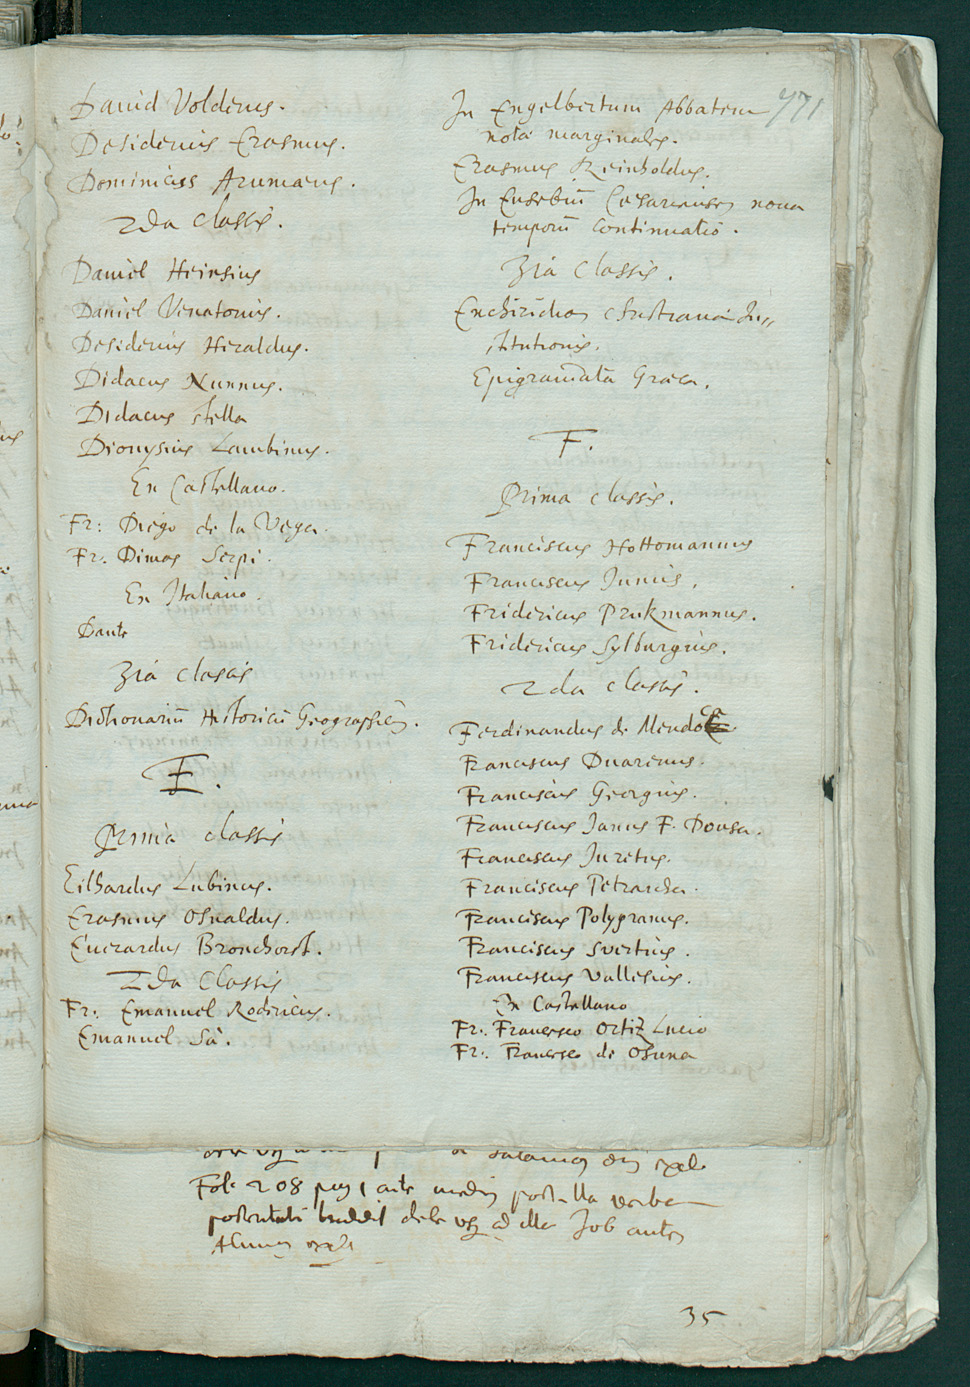 Dauid Volderus.
Desiderius Erasmus.
Dominicus Arumaeus.
2da classis.
Daniel Heinsius
Daniel Venatorius.
Desiderius Heraldus.
Didacus Nunnus.
Didacus stella
Dionysius Lambinus.
En Castellano.
Fr: Diego de la Vega.
Fr: Dimas Serpi.
En Italiano.
Dante
3ia classis
Dictionariũ Historicũ Geographicũ.
E.
Prima classis
Eilhardus Lubinus.
Erasmus Osualdus.
Euerardus Bronchorst.
2da Classis
Fr: Emanuel Rodiricus.
Emanuel Sà.
771
In Engelbertum Abbatem
nota marginales.
Erasmus Reinholdus.
In Eusebiũ Cesariensem noua
temporũ continuatio.
3ia Classis.
Enchiridion christianae In„
stitutionis.
Epigrammata Graeca.
F.
Prima classis.
Franciscus Hottomannus
Franciscus Iunius.
Fridericus Prukmannus.
Fridericus Sylburgius.
2da classis.
Ferdinandus de Mendoça
Franciscus Duarenus.
Franciscus Georgius.
Franciscus Ianus F. Dousa.
Franciscus Iuretus.
Franciscus Petrarcha.
Franciscus Polygranus.
Franciscus Svertius.
Franciscus Vallesius.
En Castellano
Fr: Francesco Ortiz Lucio
Fr: Francesco de Osuna
Fol. 208 pag 1 ante mediũ post illa verba
dele vsq ad illa Job
35